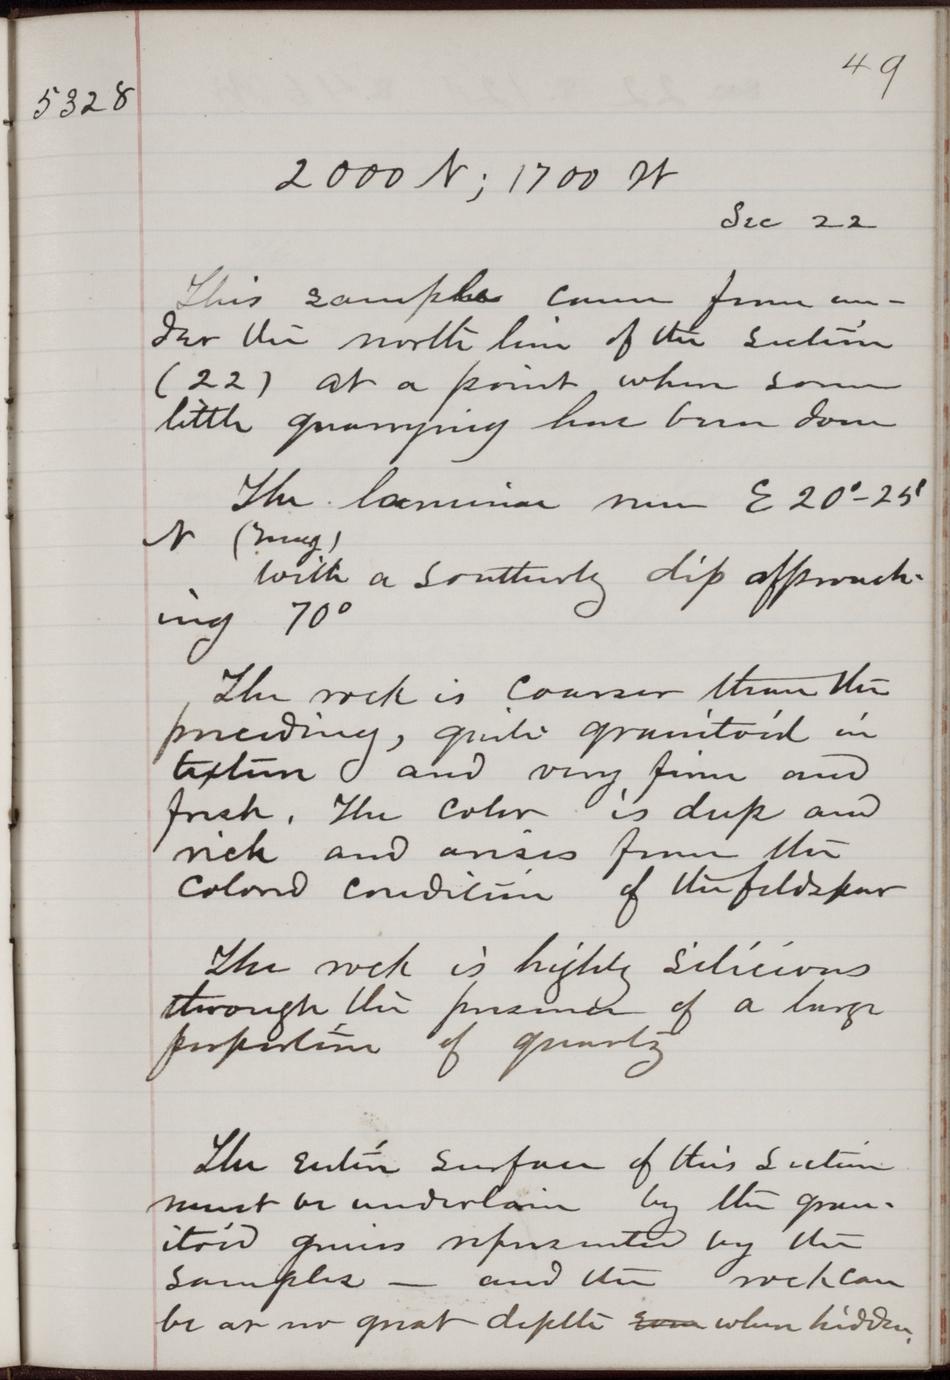 49
5328
2000 N; 1700 W
Sec 22
This sample came from un-
der the north line of the section
(22) at a point where some
little quarrying has been done
The laminae run E 20°-25°
N (mag)
with a southerly dip approach-
ing 70°
The rock is coarser than the
preceding, quite granitoid in
texture and very firm and
fresh. The color is deep and
rich and arises from the
colored condition of the feldspar
The rock is highly silicious
through the presence of a large
proportion of quartz
The entire surface of this section
must be underlain by the gran-
itoid gneiss represented by the
samples — and the rock can
be at no great depth even when hidden.